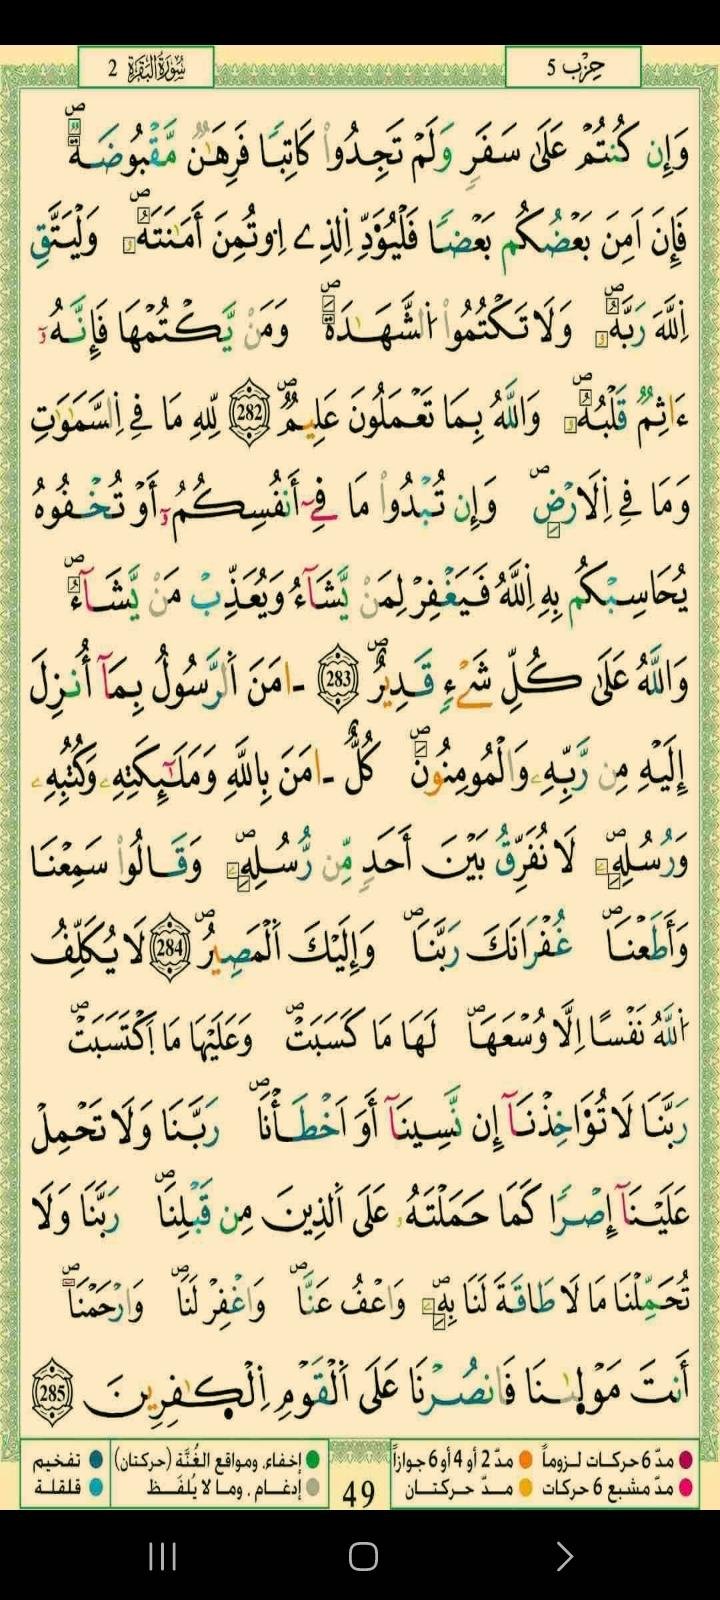 سُورَةُ البَقَرَة 2
حِزْب 5
وَإِن كُنتُمْ عَلَىٰ سَفَرٖ وَلَمْ تَجِدُواْ كَاتِبٗا فَرِهَٰنٞ مَّقْبُوضَةٞۖ
فَإِنَ اَمِنَ بَعْضُكُم بَعْضٗا فَلْيُؤَدِّ اِ۬لذِے اِ۟وتُمِنَ أَمَٰنَتَهُۥۖ وَلْيَتَّقِ
اِ۬للَّهَ رَبَّهُۥۖ وَلَا تَكْتُمُواْ اُ۬لشَّهَٰدَةَۖ وَمَنْ يَّكْتُمْهَا فَإِنَّهُۥٓ
ءَاثِمٞ قَلْبُهُۥۖ وَاللَّهُ بِمَا تَعْمَلُونَ عَلِيمٞۖ 282 لِّلهِ مَا فِے اِ۬لسَّمَٰوَٰتِ
وَمَا فِے اِ۬لَارْضِۖ وَإِن تُبْدُواْ مَا فِےٓ أَنفُسِكُمُۥٓ أَوْ تُخْفُوهُ
يُحَاسِبْكُم بِهِ اِ۬للَّهُ فَيَغْفِرْ لِمَنْ يَّشَآءُ وَيُعَذِّبْ مَنْ يَّشَآءُۖ
وَاللَّهُ عَلَىٰ كُلِّ شَےْءٖ قَدِيرٌۖ 283 ـ۬امَنَ اَ۬لرَّسُولُ بِمَآ أُنزِلَ
إِلَيْهِ مِن رَّبِّهِۦ وَالْمُومِنُونَۖ كُلٌّ ـ۬امَنَ بِاللَّهِ وَمَلَٰٓئِكَتِهِۦ وَكُتُبِهِۦ
وَرُسُلِهِۦۖ لَا نُفَرِّقُ بَيْنَ أَحَدٖ مِّن رُّسُلِهِۦۖ وَقَالُواْ سَمِعْنَا
وَأَطَعْنَاۖ غُفْرَانَكَ رَبَّنَاۖ وَإِلَيْكَ اَ۬لْمَصِيرُۖ 284 لَا يُكَلِّفُ
اُ۬للَّهُ نَفْسًا اِلَّا وُسْعَهَاۖ لَهَا مَا كَسَبَتْۖ وَعَلَيْهَا مَا اَ۪كْتَسَبَتْۖ
رَبَّنَا لَا تُؤَاخِذْنَآ إِن نَّسِينَآ أَوَ اَخْطَأْنَاۖ رَبَّنَا وَلَا تَحْمِلْ
عَلَيْنَآ إِصْرٗا كَمَا حَمَلْتَهُۥ عَلَى اَ۬لذِينَ مِن قَبْلِنَاۖ رَبَّنَا وَلَا
تُحَمِّلْنَا مَا لَا طَاقَةَ لَنَا بِهِۦۖ وَاعْفُ عَنَّاۖ وَاغْفِرْ لَنَاۖ وَارْحَمْنَاۖ
أَنتَ مَوْلَىٰنَا فَانصُرْنَا عَلَى اَ۬لْقَوْمِ اِ۬لْكٰ۪فِرِينَ 285
مدّ 6 حركات لـزوماً مدّ 2 أو 4 أو 6 جوازاً
مدّ مشبع 6 حركات مـدّ حركتـان
49
إخفاء، ومواقع الغُنَّة (حركتان) تفخيم
إدغـام . وما لا يُلفَـظ قلقلة